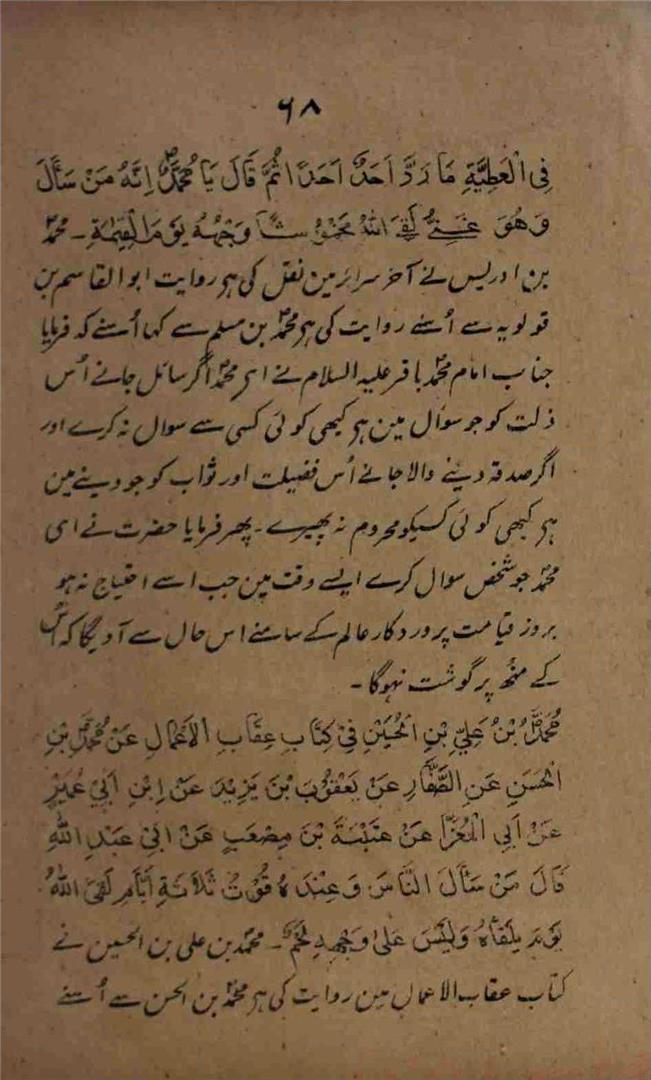 ۶۸
فِی الْعَطِیَّةِ مَا رَدَّ اَحَدٌ اَحَدًا ثُمَّ قَالَ یَا مُحَمَّدُ اِنَّهُ مَنْ سَأَلَ
وَهُوَ غَنِیٌّ لَقِیَ اللّٰهَ مَخْمُوشًا وَجْهُهُ یَوْمَ الْقِیٰمَةِ ۔ محمد
بن ادریس نے آخر سرائر مین نقل کی ہر روایت ابو القاسم بن
قولویہ سے اُسنے روایت کی ہر محمد بن مسلم سے کہا اُسنے کہ فرمایا
جناب امام محمد باقر علیہ السلام نے ای محمد اگر سائل جانے اُس
ذلت کو جو سوال مین ہر کبھی کوئی کسی سے سوال نہ کرے اور
اگر صدقہ دینے والا جانے اُس فضیلت اور ثواب کو جو دینے مین
ہر کبھی کوئی کسیکو محروم نہ پھیرے ۔ پھر فرمایا حضرت نے ای
محمد جو شخص سوال کرے ایسے وقت مین جب اسے احتیاج نہ ہو
بروز قیامت پروردگار عالم کے سامنے اس حال سے آویگا کہ اُس
کے منھ پر گوشت نہوگا ۔
مُحَمَّدُ بْنُ عَلِیِّ بْنِ الْحُسَیْنِ فِیْ کِتَابِ عِقَابِ الْاَعْمَالِ عَنْ مُحَمَّدِ بْنِ
الْحَسَنِ عَنِ الصَّفَّارِ عَنْ یَعْقُوْبَ بْنَ یَزِیْدَ عَنْ اِبْنِ اَبِیْ عُمَیْرٍ
عَنْ اَبِی الْمُعَزَّا عَنْ عَنْبَسَةَ بْنَ مِصْعَبٍ عَنْ اَبِیْ عَبْدِ اللّٰهِ
قَالَ مَنْ سَأَلَ النَّاسَ وَعِنْدَهُ قُوْتُ ثَلَاثَةِ اَیَّامٍ لَقِیَ اللّٰهَ
یَوْمَ یَلْقَاهُ وَلَیْسَ عَلٰی وَجْهِهِ لَحْمٌ ۔ محمد بن علی بن الحسین نے
کتاب عقاب الاعمال مین روایت کی ہر محمد بن الحسن سے اُسنے